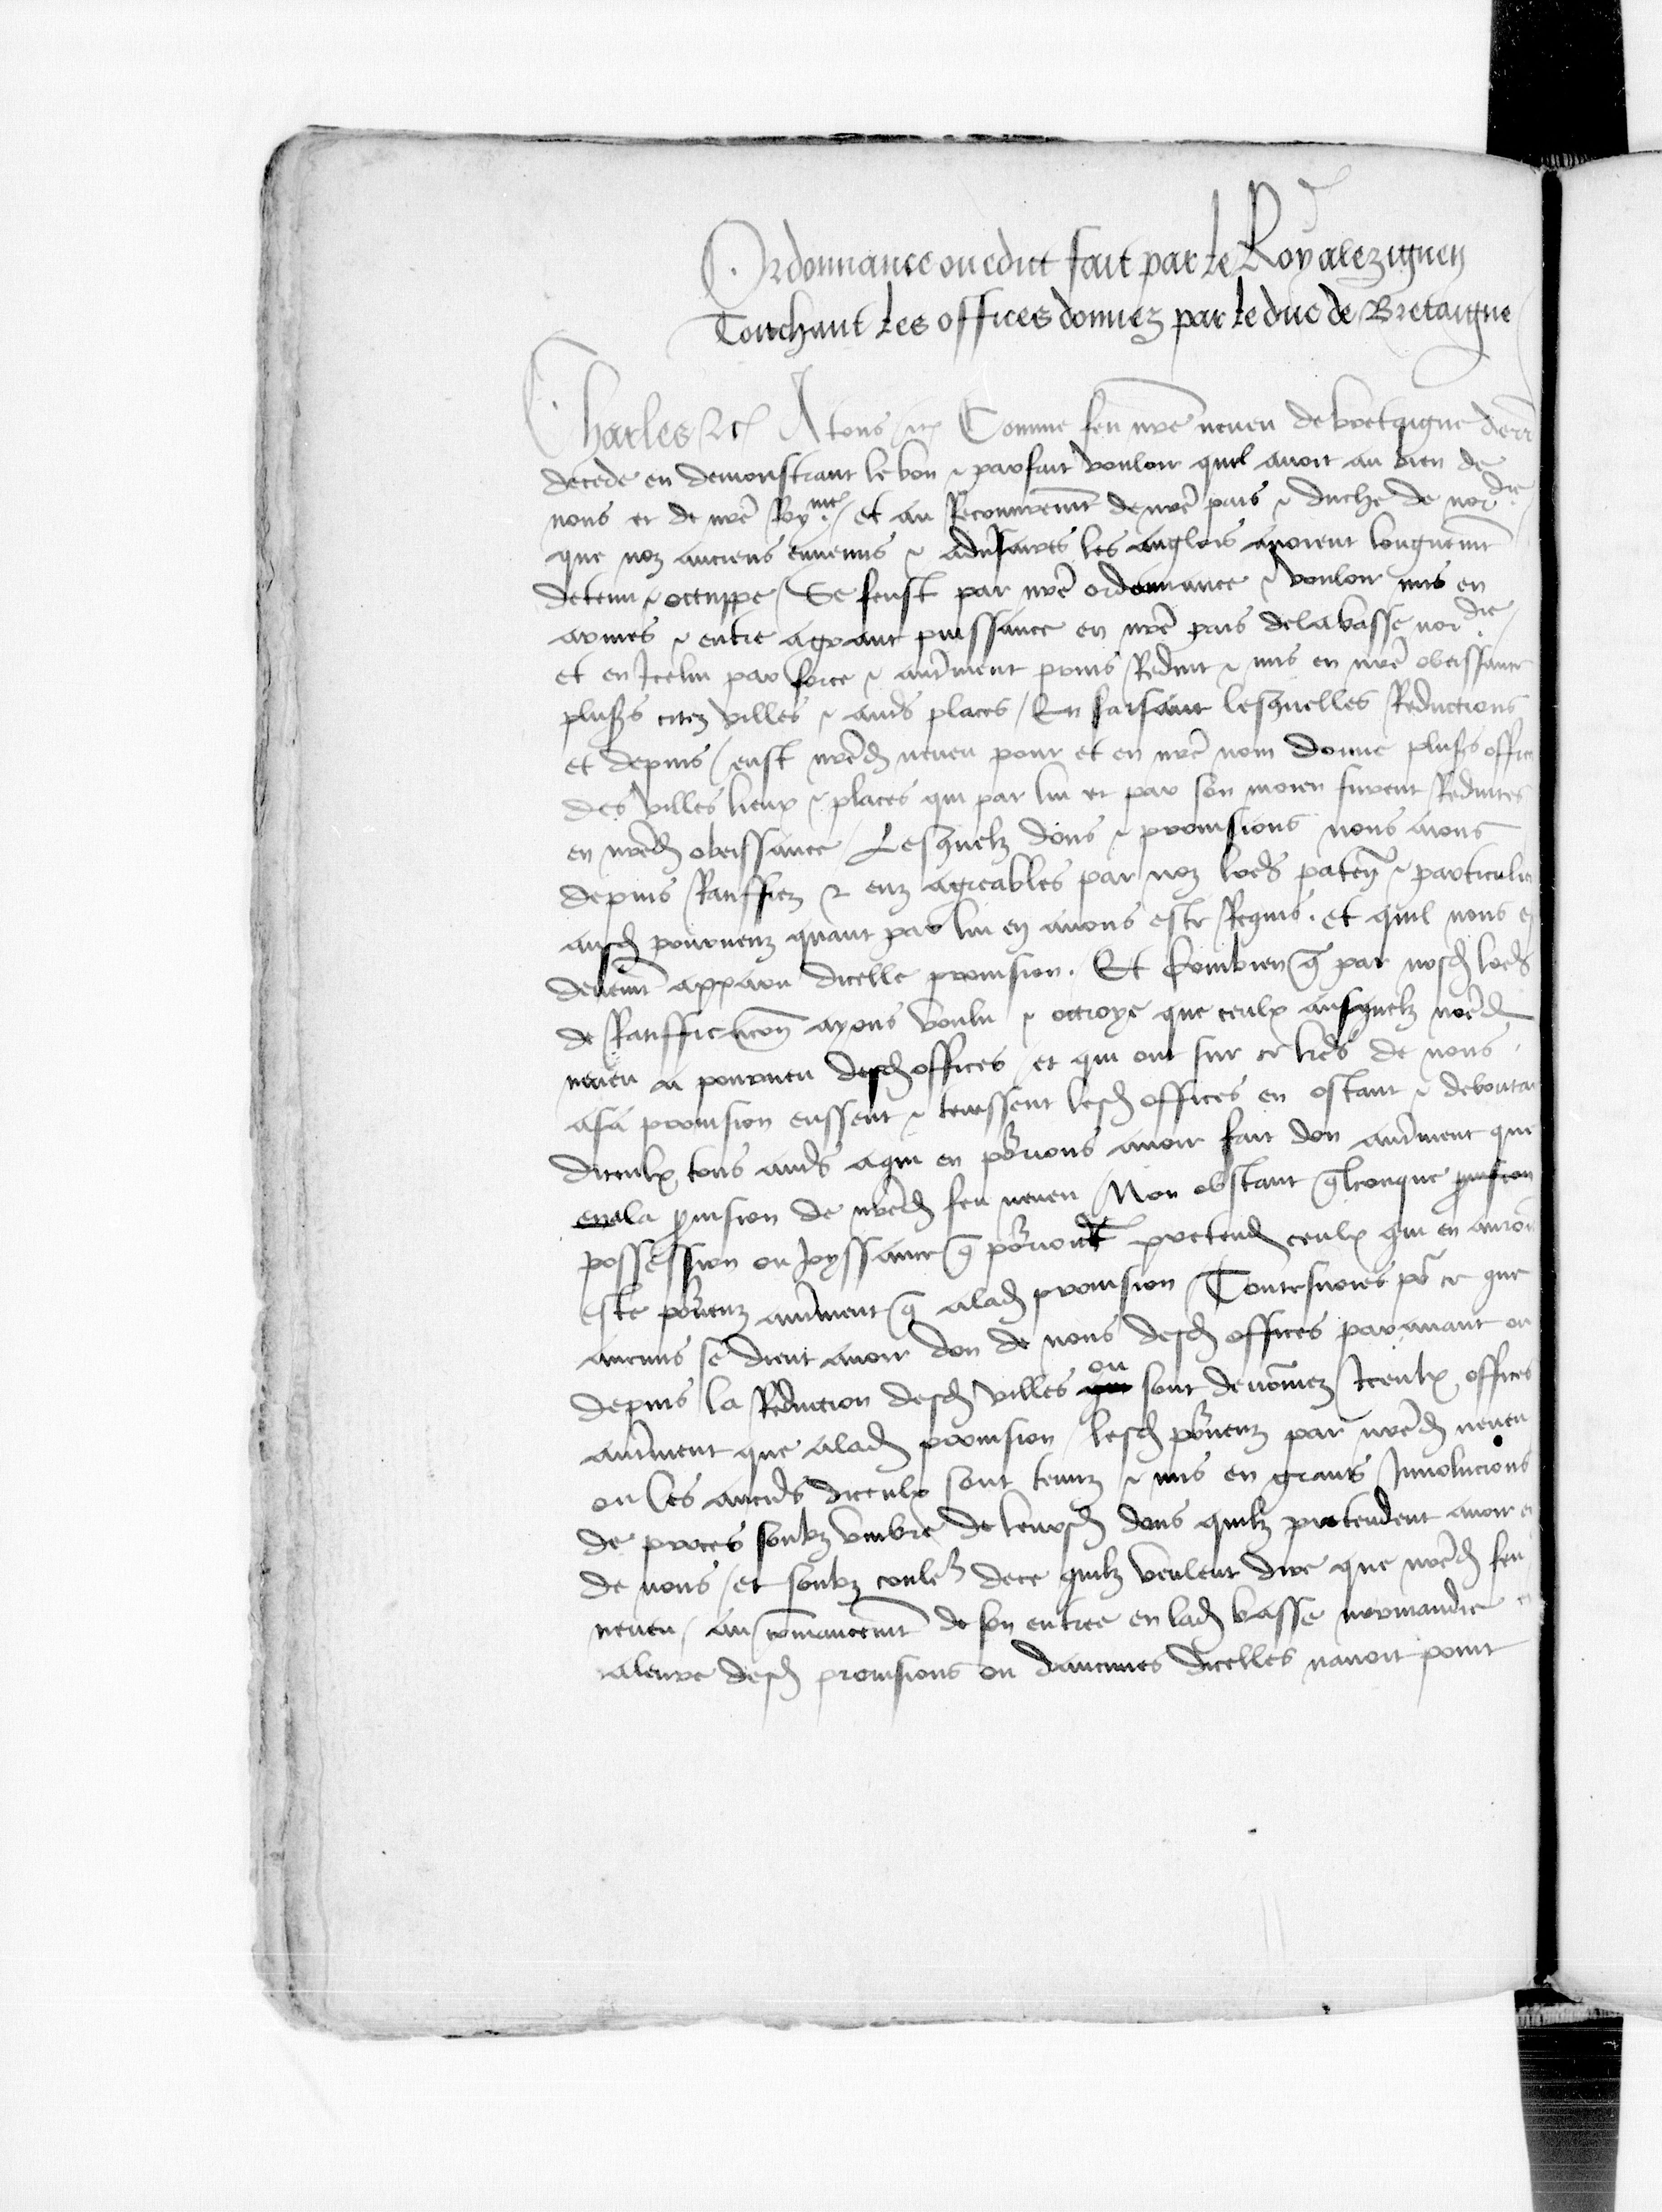 Ordonnance ou edict fait par le Roy a lezignen
Touchant les offices donnez par le duc de Bretaigne
Charles etc A tous etc Comme feu nre neveu de bretaigne derr
decede en demonstrant le bon & parfait vouloir quil avoit au bien de
nous et de nre Roy.me / et au Recouvremt de nre pais & duche de nor.die
que noz anciens ennemis & adversaires les anglois avoient longuemt
detenu & occuppe / Se feust par nre ordonnance & vouloir mis en
armes & entre a grant puissance en nre pais de la basse nor.die /
et en Icelui par force & autrement prins Reduit & mis en nre obeissance
plusrs citez villes & autrs places / En faisant lesquelles Reductions
et depuis / eust nred neveu pour et en nre nom donne plusrs offices
des villes lieux & places qui par lui et par son moien furent Reduites
en nred obeissance / Lesquelz dons & provisions nous avons
depuis Ratiffiez & euz agreables par noz lres patens & particulier
ausd pourveuz quant par lui en avons este Requis . et quil nous e
deuemt apparu dicelle provision . Et combien q par nosd lres
de Ratifficacion ayons voulu & octroye que ceulx ausquelz nred
neveu a pourveu desd offices / et qui ont sur ce lres de nous
a sa provision eussent & tenissent lesd offices en ostant & deboutant
diceulx tous autrs a qui en pourrions avoir fait don autrement que
en la provision de nred feu neveu / Non obstant qlconque provision
possession ou Joyssance q pourroient pretendre ceulx qui en auroient
este pourveuz autrement q a lad provision / Toutesvoies pr ce que
aucuns se dient avoir don de nous desd offices paravant ou
depuis la Reduction desd villes ou sont denommez Iceulx offices
autrement que a lad provision / lesd pourveuz par nred neveu
ou les aucuns diceulx sont tenuz & mis en grans Involucions
de proces soubz umbre de leursd dons quilz pretendent avoir e
de nous / et soubz couleur de ce quilz veulent dire que nred feu
neveu / au commancemt de son entree en lad basse normandie e
a leure desd provisions ou daucunes dicelles navoit point